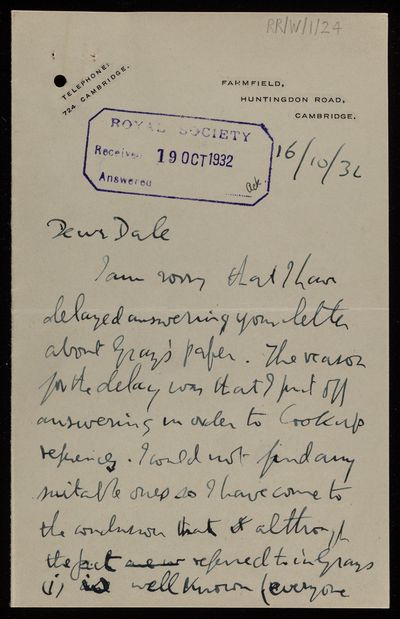 RR/W/1/24
TELEPHONE:
724 CAMBRIDGE.
FARMFIELD,
HUNTINGDON ROAD,
CAMBRIDGE.
ROYAL SOCIETY
Received 19 OCT 1932
Answered Ack.
16/10/32
Dear Dale
I am sorry that I have
delayed answering your letter
about Gray's paper. The reason
for the delay was that I put off
answering in order to look up
references. I could not find any
suitable ones so I have come to
the conclusion that although
the fact referred to in Grays
(i) is well known (everyone